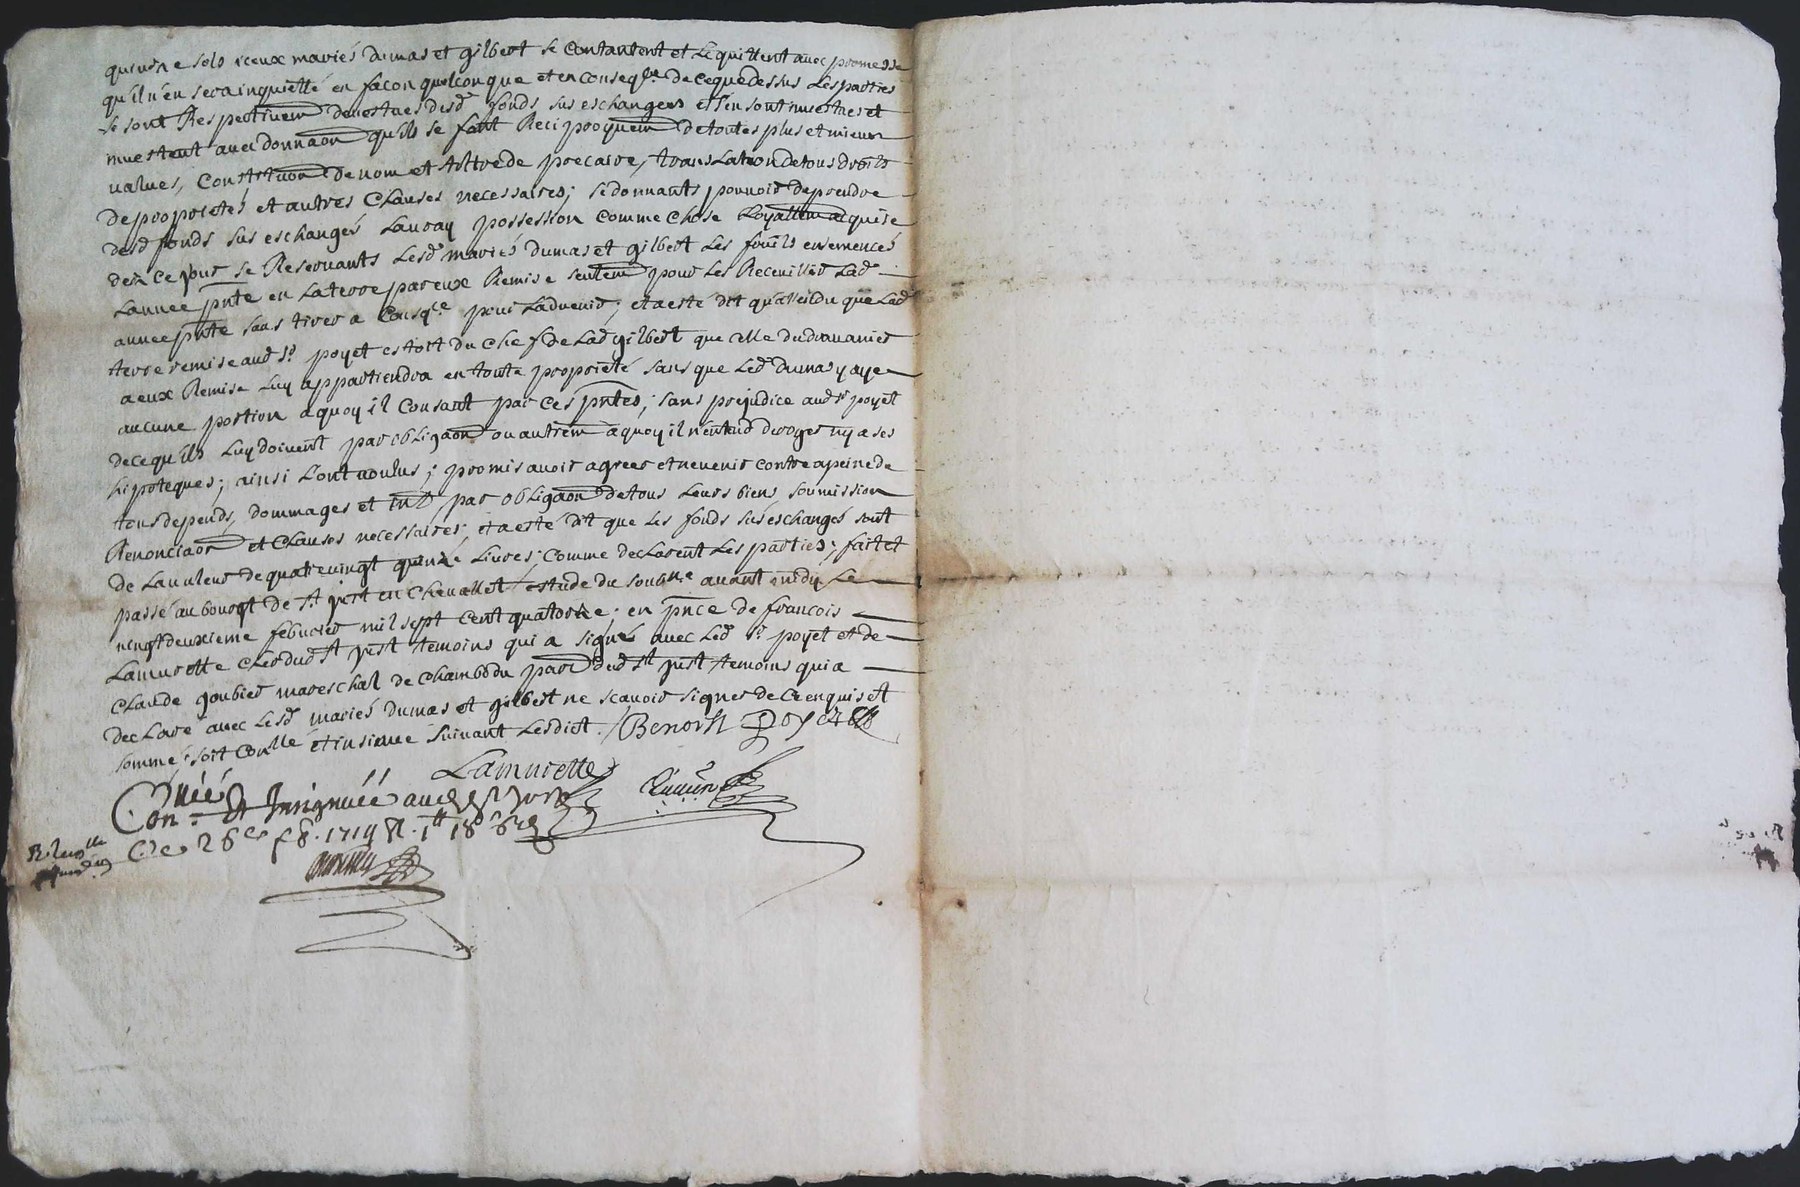 quinze sols iceux mariés dumas et gilbert se contantent et le quittent avec promesse
qu'il n'en sera inquietté en façon quelconque et en conseq.ce de ce que dessus Les parties
se sont Respectivem devestues desd fonds sus eschangés et s'en sont investues et
investent avec donnaon qu'ils se font Reciproquem de toutes plus et mieux
values, Constituon de nom et tiltre de precaire, translation de tous droits
de proprietés et autres Clauses necessaires; se donnants pouvoir de prendre
desd fonds sus eschangés La vray possession comme chose Loyallem acquise
dez ce jour se Reservants Lesd mariés dumas et gilbert Les fruits ensemencés
L'annee pnte en La terre par eux Remise seulem pour Les Receuillir Lad
annee pnte sans tirer a Conseq.ce pour L'advenir; et a esté dit qu'attendu que Lad
terre remise aud Sr poyet estoit du chef de Lad gilbert que celle du
a eux Remise Luy appartiendra en toute proprieté sans que Led dumas y aye
aucune portion a quoy il Consant par ces pntes; sans prejudice aud Sr poyet
de ce qu'ils Luy doivent par obligaon ou autrem a quoy il n'entend deroger ny a ses
hipoteques; ainsi L'ont voulus; promis avoir agreer et ne venir contre a peine de
tous depends, dommages et int par obligaon de tous Leurs biens, soumission
Renonciaon et Clauses necessaires; et a esté dit que Les fonds sus eschangés sont
de La valeur de quatre vingt quinze Livres; comme declarent Les parties; fait et
passé au bourgt de St just en Chevallet estude du soubne avant midy Le
vingt deuxieme febvrier mil sept cent quatorze; en pnce de francois
Lamurette Clerc dud St just temoins qui a signé avec Led Sr poyet et de
Claude joubier mareschal de Chambodu parr dud St just temoins qui a
declaré avec Lesd mariés dumas et gilbert ne sçavoir signer de ce enquis et
sommé; soit Conlle et insinué suivant Lesdict. Benoist Poyet
Lamurette
Con.ée et Insignuéé aud St Just
Ce 26e f.8. 1714 R. 1tt 18s 6d